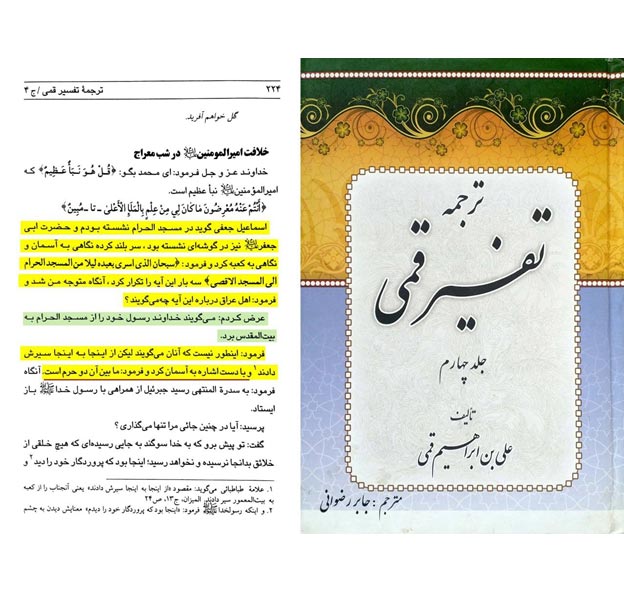 ترجمهٔ تفسیر قمی / ج ۴
۲۲۴
گل خواهم آفرید.
خلافت امیرالمومنین ﷺ در شب معراج
خداوند عز و جل فرمود: ای محمد بگو: ﴿قُلْ هُوَ نَبَأٌ عَظِیمٌ﴾ که
امیرالمؤمنین نبأ عظیم است.
﴿أَنْتُمْ عَنْهُ مُعْرِضُونَ مَا كَانَ لِيَ مِنْ عِلْمٍ بِالْمَلَإِ الْأَعْلَى - تا - مُبِينٌ﴾
اسماعیل جعفی گوید در مسجد الحرام نشسته بودم و حضرت ابی
جعفر نیز در گوشه‌ای نشسته بود، سر بلند کرده نگاهی به آسمان و
نگاهی به کعبه کرد و فرمود: ﴿سبحان الذی اسری بعبده لیلا من المسجد الحرام
الی المسجد الاقصی﴾ سه بار این آیه را تکرار کرد، آنگاه متوجه من شد و
فرمود: اهل عراق درباره این آیه چه می‌گویند؟
عرض کردم: می‌گویند خداوند رسول خود را از مسجد الحرام به
بیت‌المقدس برد.
فرمود: اینطور نیست که آنان می‌گویند لیکن از اینجا به اینجا سیرش
دادند۱ و با دست اشاره به آسمان کرد و فرمود: ما بین آن دو حرم است. آنگاه
فرمود: به سدرة المنتهی رسید جبرئیل از همراهی با رسول خدا ﷺ باز
ایستاد.
پرسید: آیا در چنین جائی مرا تنها می‌گذاری؟
گفت: تو پیش برو که به خدا سوگند به جایی رسیده‌ای که هیچ خلقی از
خلائق بدانجا نرسیده و نخواهد رسید؛ اینجا بود که پروردگار خود را دید۲ و
۱. علامهٔ طباطبائی می‌گوید: مقصود «از اینجا به اینجا سیرش دادند» یعنی آنجناب را از کعبه
به بیت‌المعمور سیر دادند. المیزان، ج۱۳، ص۲۴
۲. و اینکه رسولخدا ﷺ فرمود: «اینجا بود که پروردگار خود را دیدم» معنایش دیدن به چشم
ترجمه
تفسیر قمی
جلد چهارم
تألیف
علی بن ابراهیم قمی
مترجم: جابر رضوانی